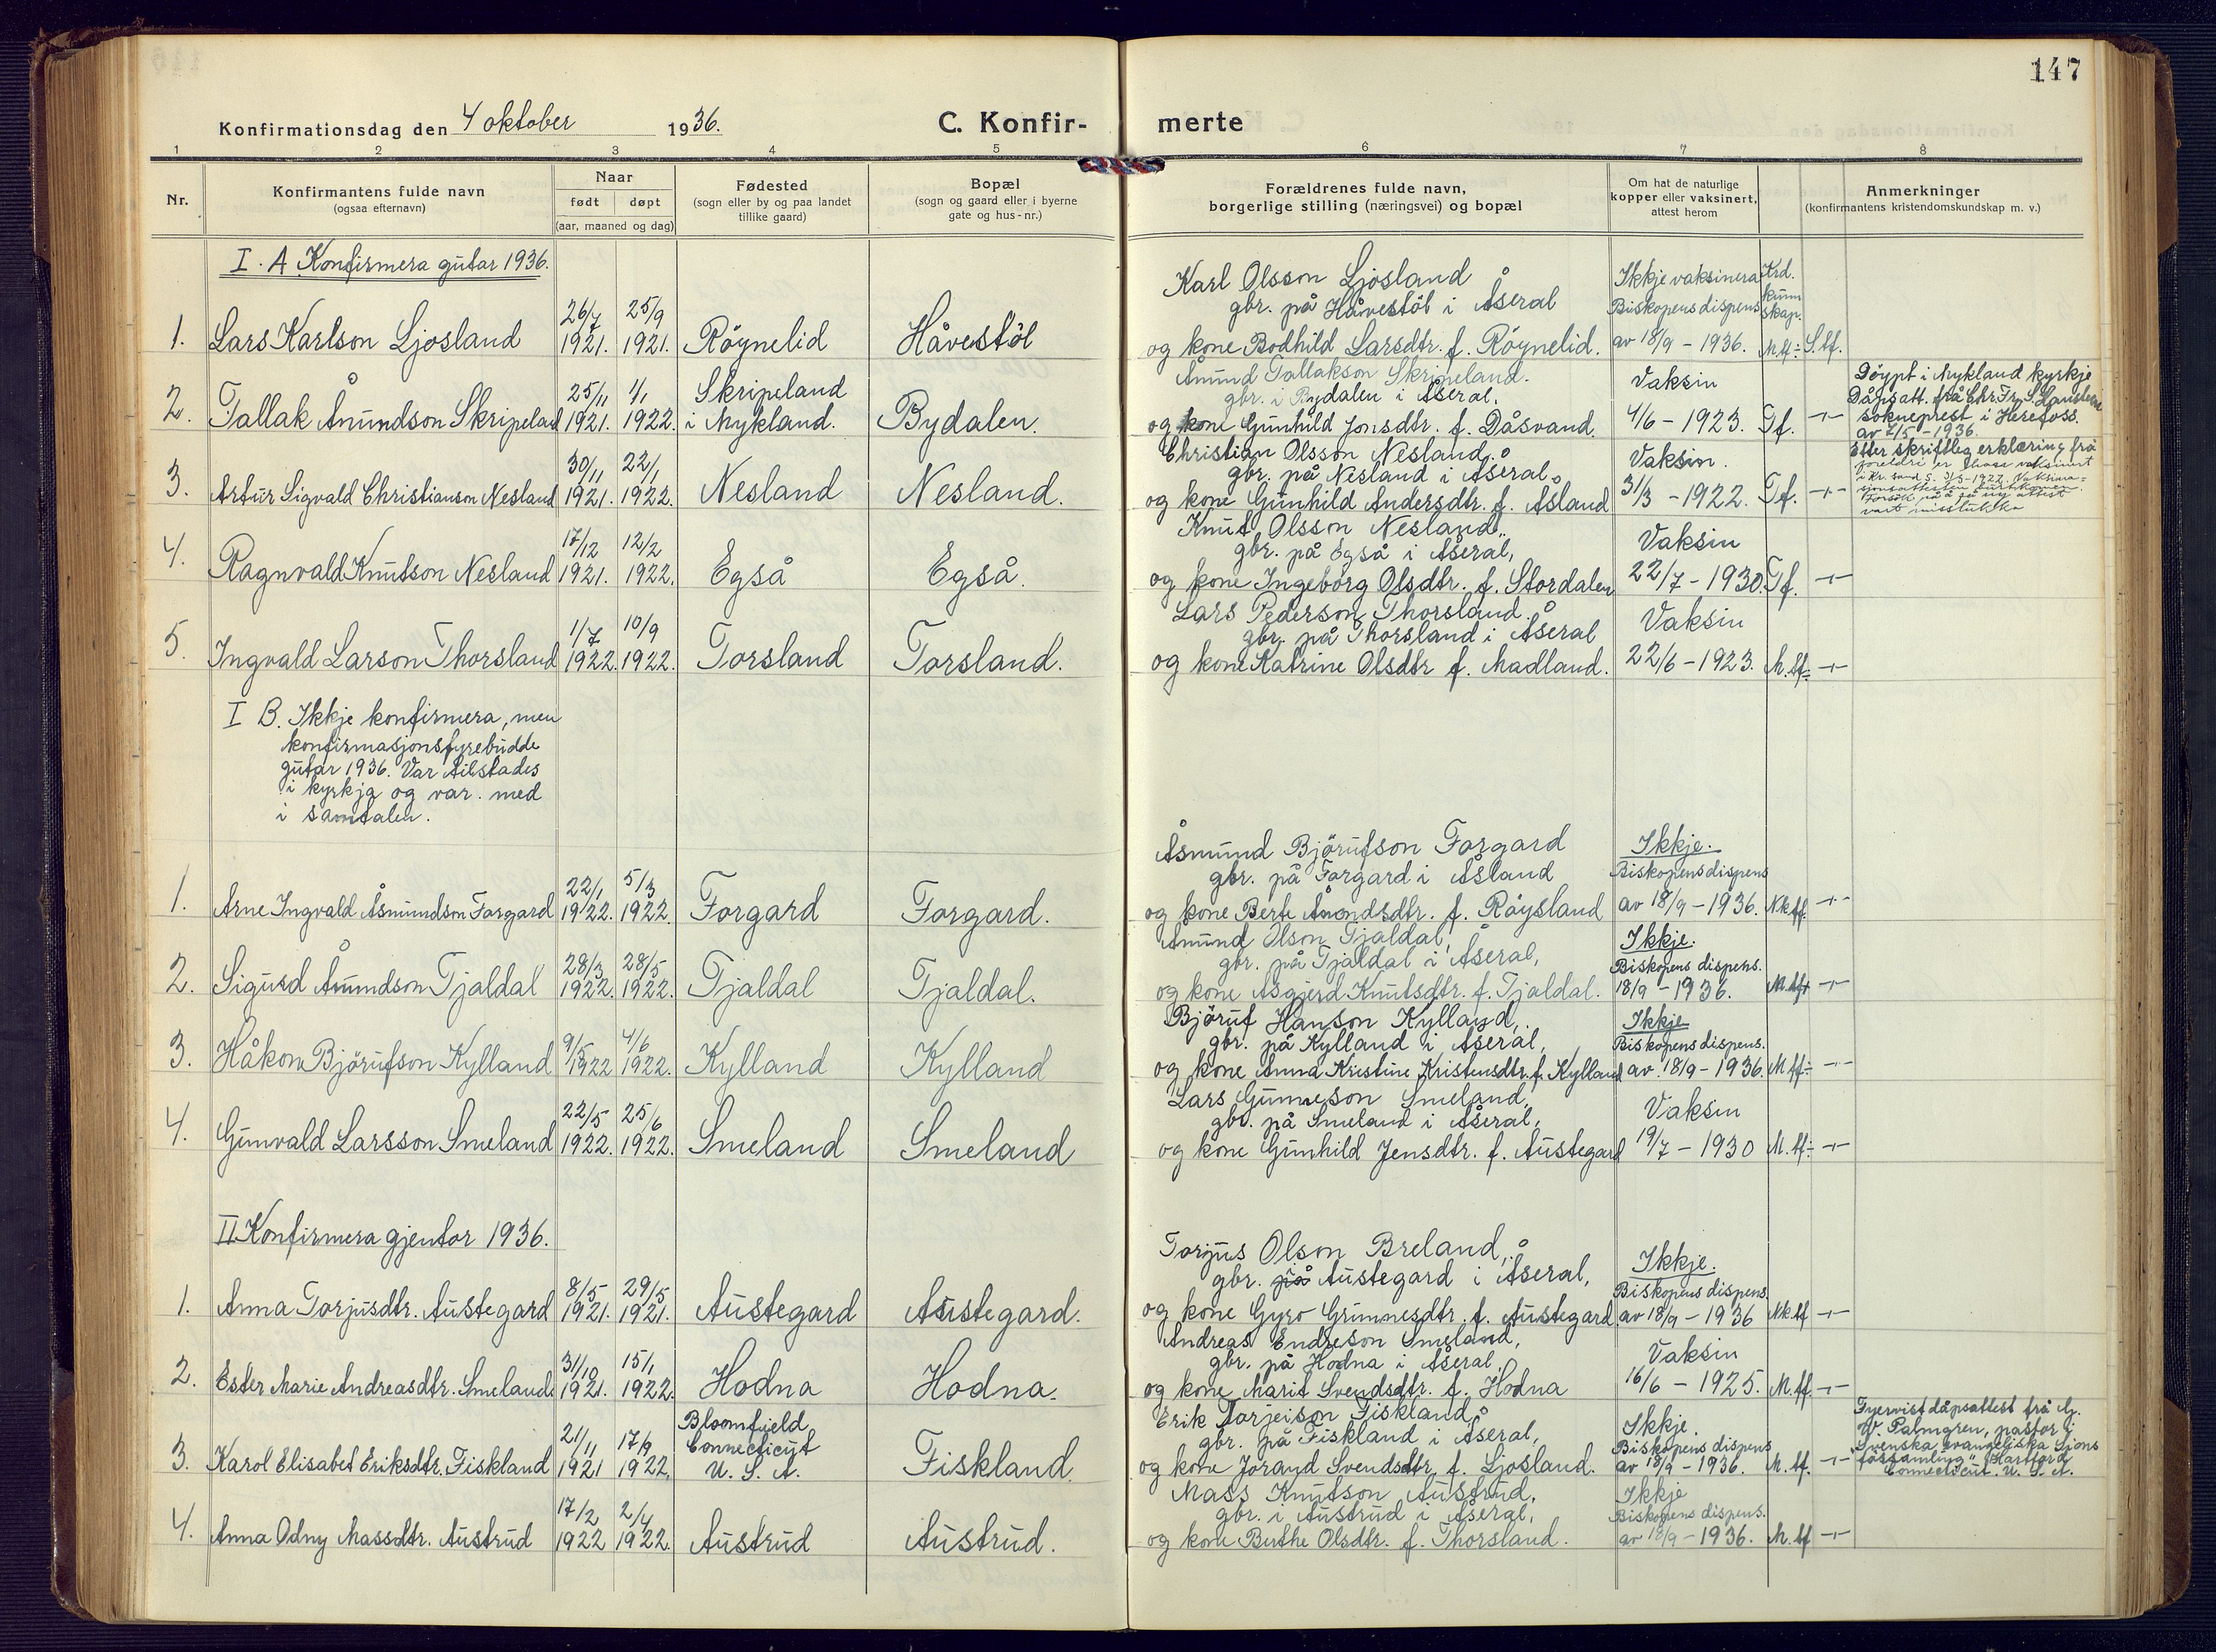 147
Konfirmationsdag den 4 oktober 1936.
C. Konfir-
merte
1 2 3 4 5 6 7 8
Nr.
Konfirmantens fulde navn
(ogsaa efternavn)
Naar
født døpt
(aar, maaned og dag)
Fødested
(sogn eller by og paa landet
tillike gaard)
Bopæl
(sogn og gaard eller i byerne
gate og hus-nr.)
Forældrenes fulde navn,
borgerlige stilling (næringsvei) og bopæl
Om hat de naturlige
kopper eller vaksinert,
attest herom
Anmerkninger
(konfirmantens kristendomskundskap m. v.)
I. A Konfirmera gutar 1936.
Krd.
kunn
skap.
1. Lars Karlson Ljosland
26/7 25/9
1921. 1921.
Röynelid
Håvestöl
Karl Olsson Ljosland
gbr. på Håvestöl i Åseral
og kone Bodhild Larsdtr. f. Röynelid.
Ikkje vaksinera
Biskopens dispens
av 18/9 - 1936.
M.tf÷ S.tf.
2. Tallak Åmundson Skripeland
25/11 1/1
1921. 1922.
Skripeland
i Mykland.
Bydalen.
Åmund Tallakson Skripeland.
gbr. i Bydalen i Åseral,
og kone Gunhild Jonsdtr. f. Dåsvand.
Vaksin
4/6 - 1923.
Tf. -"-
Döypt i Mykland kyrkje
Dåpsatt. frå Chr. Fr. S.
sokneprest i Herefoss.
av 2/5 - 1936.
3. Artur Sigvald Christianson Nesland
30/11 22/1
1921. 1922.
Nesland
Nesland.
Christian Olsson Nesland,
gbr. på Nesland i Åseral.
og kone Gunhild Andersdtr. f. Åsland
Vaksin.
31/3 - 1922.
Tf. -"-
Etter skriftleg erklæring frå
foreldri er vaksinert
i Kr. sand S. 31/3 - 1922. Vaksina-
sjonsattesten burtkomen.
Forsök på å få ny attest
vart mislukka
4. Ragnvald Knutson Nesland
17/12 12/2
1921. 1922.
Egså
Egså.
Knut Olsson Nesland,
gbr. på Egså i Åseral,
og kone Ingeborg Olsdtr. f. Stordalen
Vaksin
22/7 - 1930.
Tf. -"-
5. Ingvald Larson Thorsland
1/7 10/9
1922. 1922.
Torsland
Torsland.
Lars Pederson Thorsland.
gbr. på Thorsland i Åseral
og kone Katrine Olsdtr f. Madland.
Vaksin
22/6 - 1923.
M.tf÷ -"-
I B. Ikkje konfirmera, men
konfirmasjonsfyrebudde
gutar 1936. Var tilstades
i kyrkja og var med
i samtalen.
1. Arne Ingvald Åsmundson Forgard
22/1 5/3
1922. 1922.
Forgard
Forgard.
Åsmund Björufson Forgard
gbr. på Forgard i Åsland
og kone Berte Åmondsdtr. f. Röysland
Ikkje.
Biskopens dispens
av 18/9 - 1936.
Mk.tf. -"-
2. Sigurd Åmundson Tjaldal
28/3 28/5
1922. 1922.
Tjaldal
Tjaldal.
Åmund Olson Tjaldal,
gbr. på Tjaldal i Åseral,
og kone Åsgjerd Knutsdtr. f. Tjaldal.
Ikkje.
Biskopens dispens.
18/9 - 1936.
M.tf+ -"-
3. Håkon Björufson Kylland
9/5 4/6
1922 1922.
Kylland
Kylland
Björuf Hanson Kylland,
gbr. på Kylland i Åseral,
og kone Anna Kristine Kristensdtr. f. Kylland
Ikkje
Biskopens dispens.
av 18/9 - 1936.
M.tf÷ -"-
4. Gunvald Larsson Smeland
22/5 25/6
1922. 1922.
Smeland
Smeland
Lars Gunneson Smeland,
gbr. på Smeland i Åseral,
og kone Gunhild Jensdtr. f. Austegard
Vaksin
19/7 - 1930
M.tf÷ -"-
II. Konfirmera gjentor 1936.
1. Anna Torjusdtr. Austegard
8/5 29/5
1921. 1921.
Austegard
Austegard.
Torjus Olson Breland,
gbr. på Austegard i Åseral,
og kone Gyro Grunnesdtr. f. Austegard.
Ikkje.
Biskopens dispens.
av 18/9 - 1936
Mk.tf -"-
2. Ester Marie Andreasdtr. Smeland
31/10 15/1
1921. 1922.
Hodna
Hodna.
Andreas Endreson Smeland,
gbr. på Hodna i Åseral,
og kone Marit Svendsdtr. f. Hodna
Vaksin
16/6 - 1925.
M.tf. -"-
3. Karol Elisabet Eriksdtr. Fiskland
21/11 17/9
1921 1922.
Bloomfield
Connecticut
U. S. A.
Fiskland.
Erik Torjeison Fiskland,
gbr. på Fiskland i Åseral,
og kone Jorand Svendsdtr. f. Ljosland.
Ikkje.
Biskopens dispens
av 18/9 - 1936.
M.tf. -"-
Fyrevist dåpsattest frå
W. Palmgren, pastor i
Svenska evangeliska Sions
församling" Hartford
Connecticut. U. S. A.
4. Anna Odny Massdtr. Austrud
17/2 2/4
1922 1922.
Austrud
Austrud.
Mass Knutson Austrud,
gbr. i Austrud i Åseral,
og kone Berthe Olsdtr. f. Thorsland.
Ikkje
Biskopens dispens.
av 18/9 - 1936.
M.tf -"-